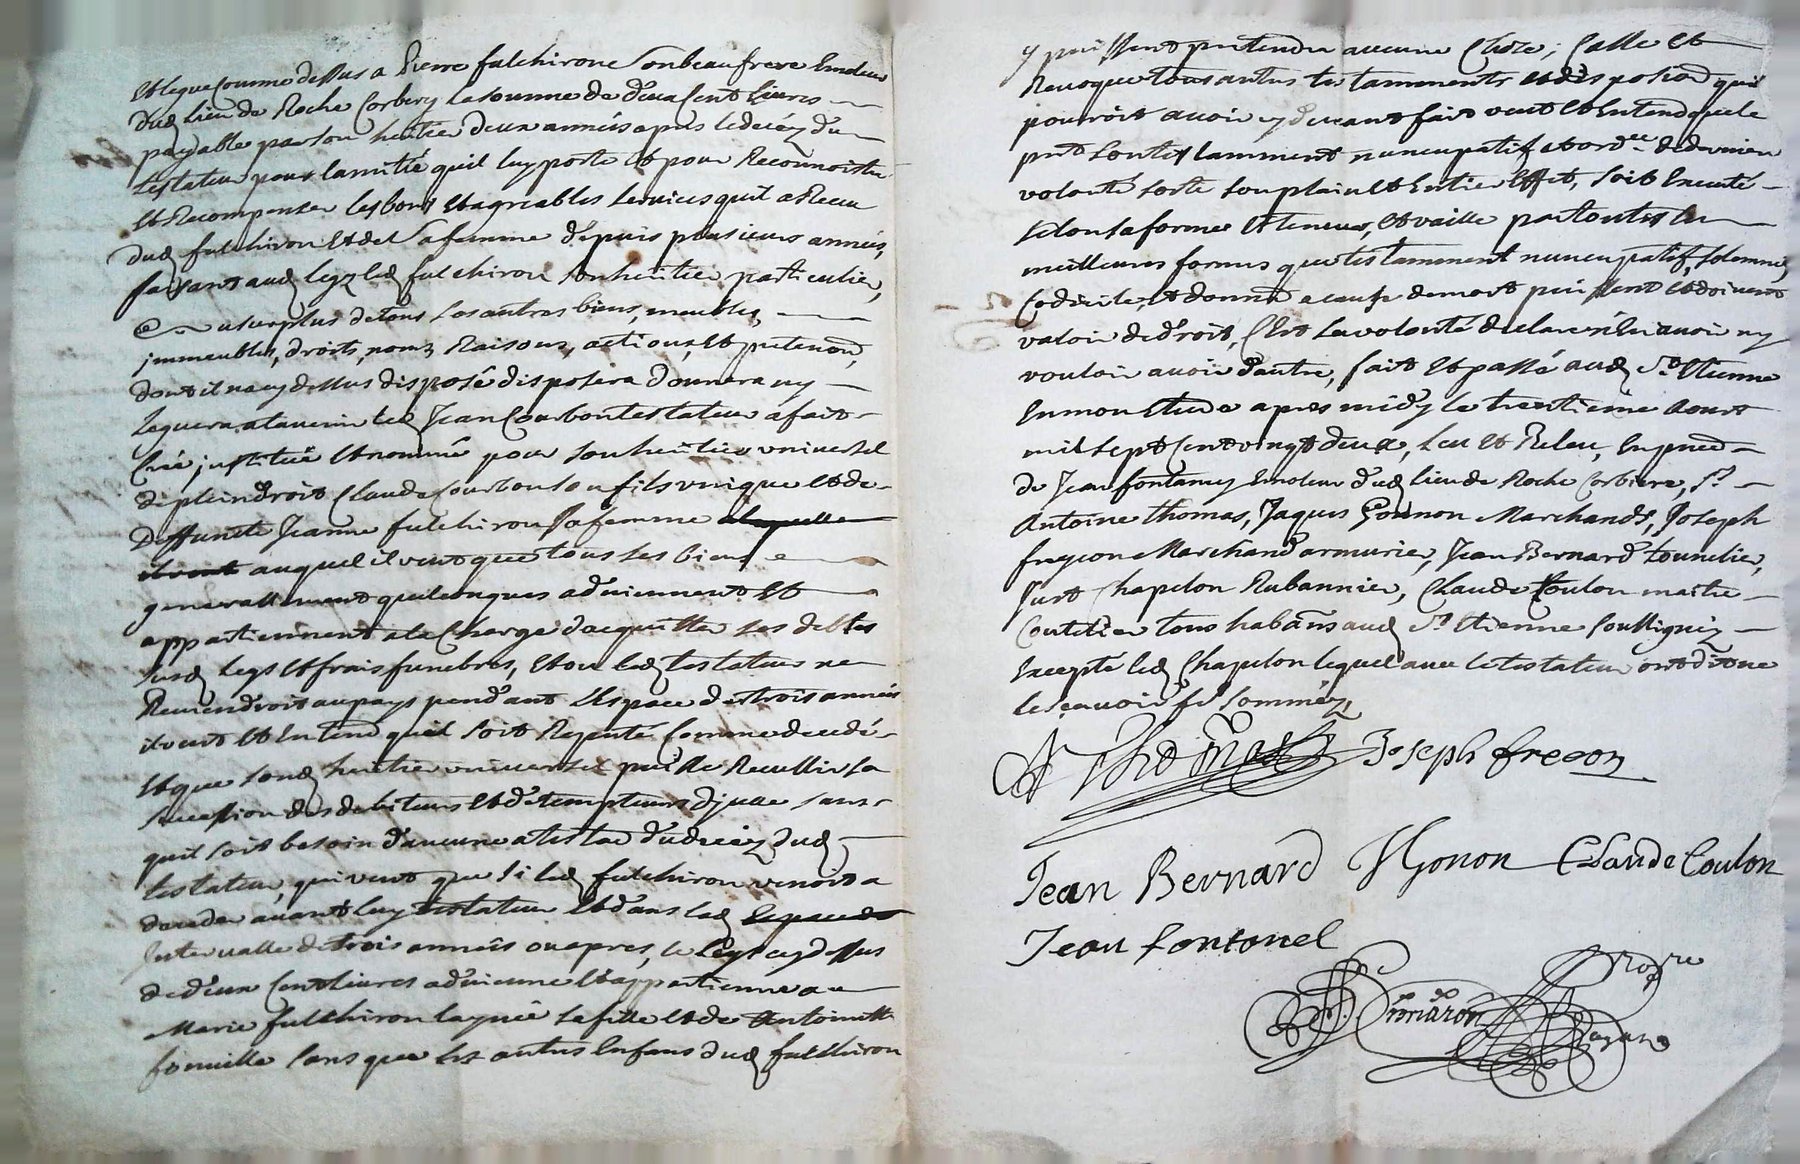 et legue comme dessus a Pierre fulchirone son beau frere Emoleur
dud lieu de Roche Corbery la somme de deux Cent Livres
payable par son heritier deux années apres le decéz du
testateur pour lamitié quil luy porte et pour Reconnoistre
et Recompenser les bons et agreables services quil a Receu
dud fulchiron et de sa femme depuis plusieurs années,
faisant aud legz led fulchiron son heritier particulier,
Et au surplus de tous ses autres biens, meubles,
immeubles, droits, noms, Raisons, actions, et pretenon,
dont il na cy dessus disposé disposera donnera ny
leguera a lavenir led Jean Courbon testateur a fait
Créé, institué et nommé pour son heritier universel
de plein droit Claude Courbon son fils unique et de
deffuncte Jeanne fulchiron sa femme a laquelle
il veut auquel il veut que tous ses biens
generallement quelconques adviennent et
appartiennent a la Charge dacquitter ses debtes
susd legs et frais funebres, et ou led testateur ne
Reviendroit au pays pendant l'Espace de trois années
il veut et Entend quil soit Reputé Comme decedé
et que sond heritier universel puisse Recullir sa
succession des debiteurs et detempteurs dicelle sans
quil soit besoin daucune attestaon du decéz dud
testateur, qui veut que si led fulchiron venoit a
deceder avant luy testateur et dans led Espace de
Intervalle de trois années ou apres, le legz cy dessus
de deux Cent livres advienne et appartienne a
Marie fulchiron laynée sa fille et de Antoinette
fonuielle sans que les autres Enfans dud fulchiron
y puissent pretendre aucune Chose; Casse et
Revoque tous autres testamments et disposion quil
pourroit avoir cy devant fait veut et Entend que le
pnt son testamment nuncupatif et ordce de derniere
volonté sorte son plain et Entier effet, soit Executé
selon sa forme et teneur, et vaille par toutes les
meilleures formes que testamment nuncupatif, solemnel
Codicile, et donnaon a cause de mort puissent et doivent
valoir de droit, C'est sa volonté declarée n'En avoir ny
vouloir avoir dautre, fait et passé aud St Etienne
En mon Etude apres midy le trentieme aoust
mil sept Cent vingt deux, Leu et Releu, En pnce
de Jean fontaney Emoleur dud lieu de Roche Corbiere, Sr
Antoine Thomas, Jaques Gonnon Marchands, Joseph
freycon Marchand armurier, Jean Bernard tounelier,
Just Chapelon Rubannier, Claude Coulon maitre
Coutelier tous habans aud St Etienne soussignéz
Excepté led Chapelon lequel avec le testateur ont dit ne
le sçavoir fe sommés,
A Thomas Joseph frecon
Jean Bernard J Gonon Claude Coulon
Jean fontanel